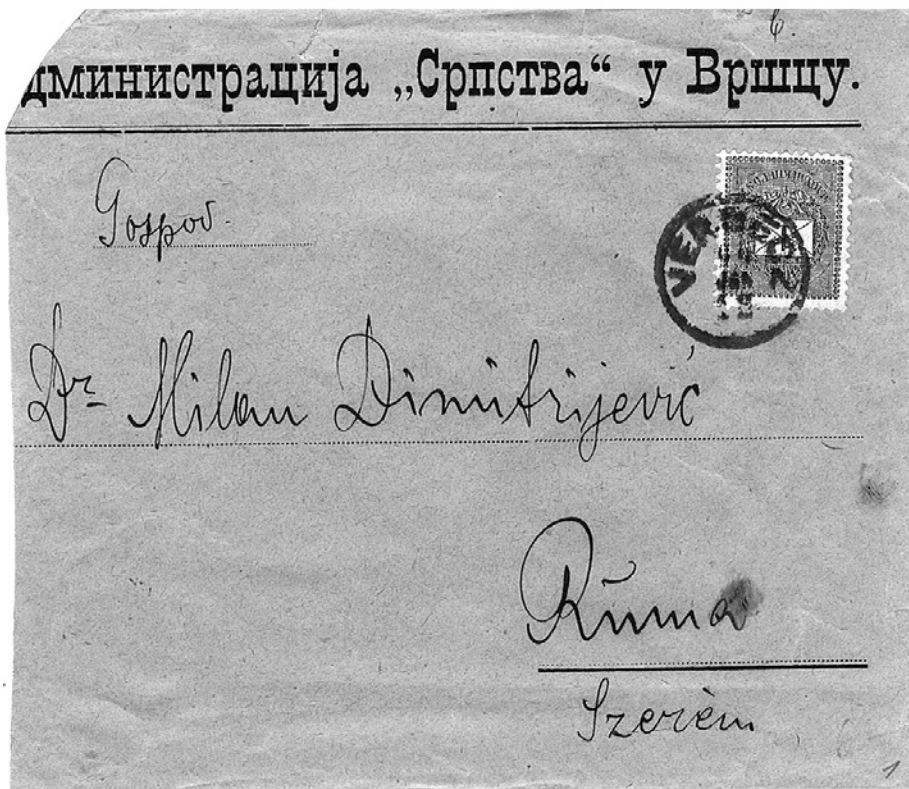 дминистрација „Српства“ у Вршцу.
Gospod.
VERSECZ
Dr Milan Dimitrijević
Ruma
Szerém
1